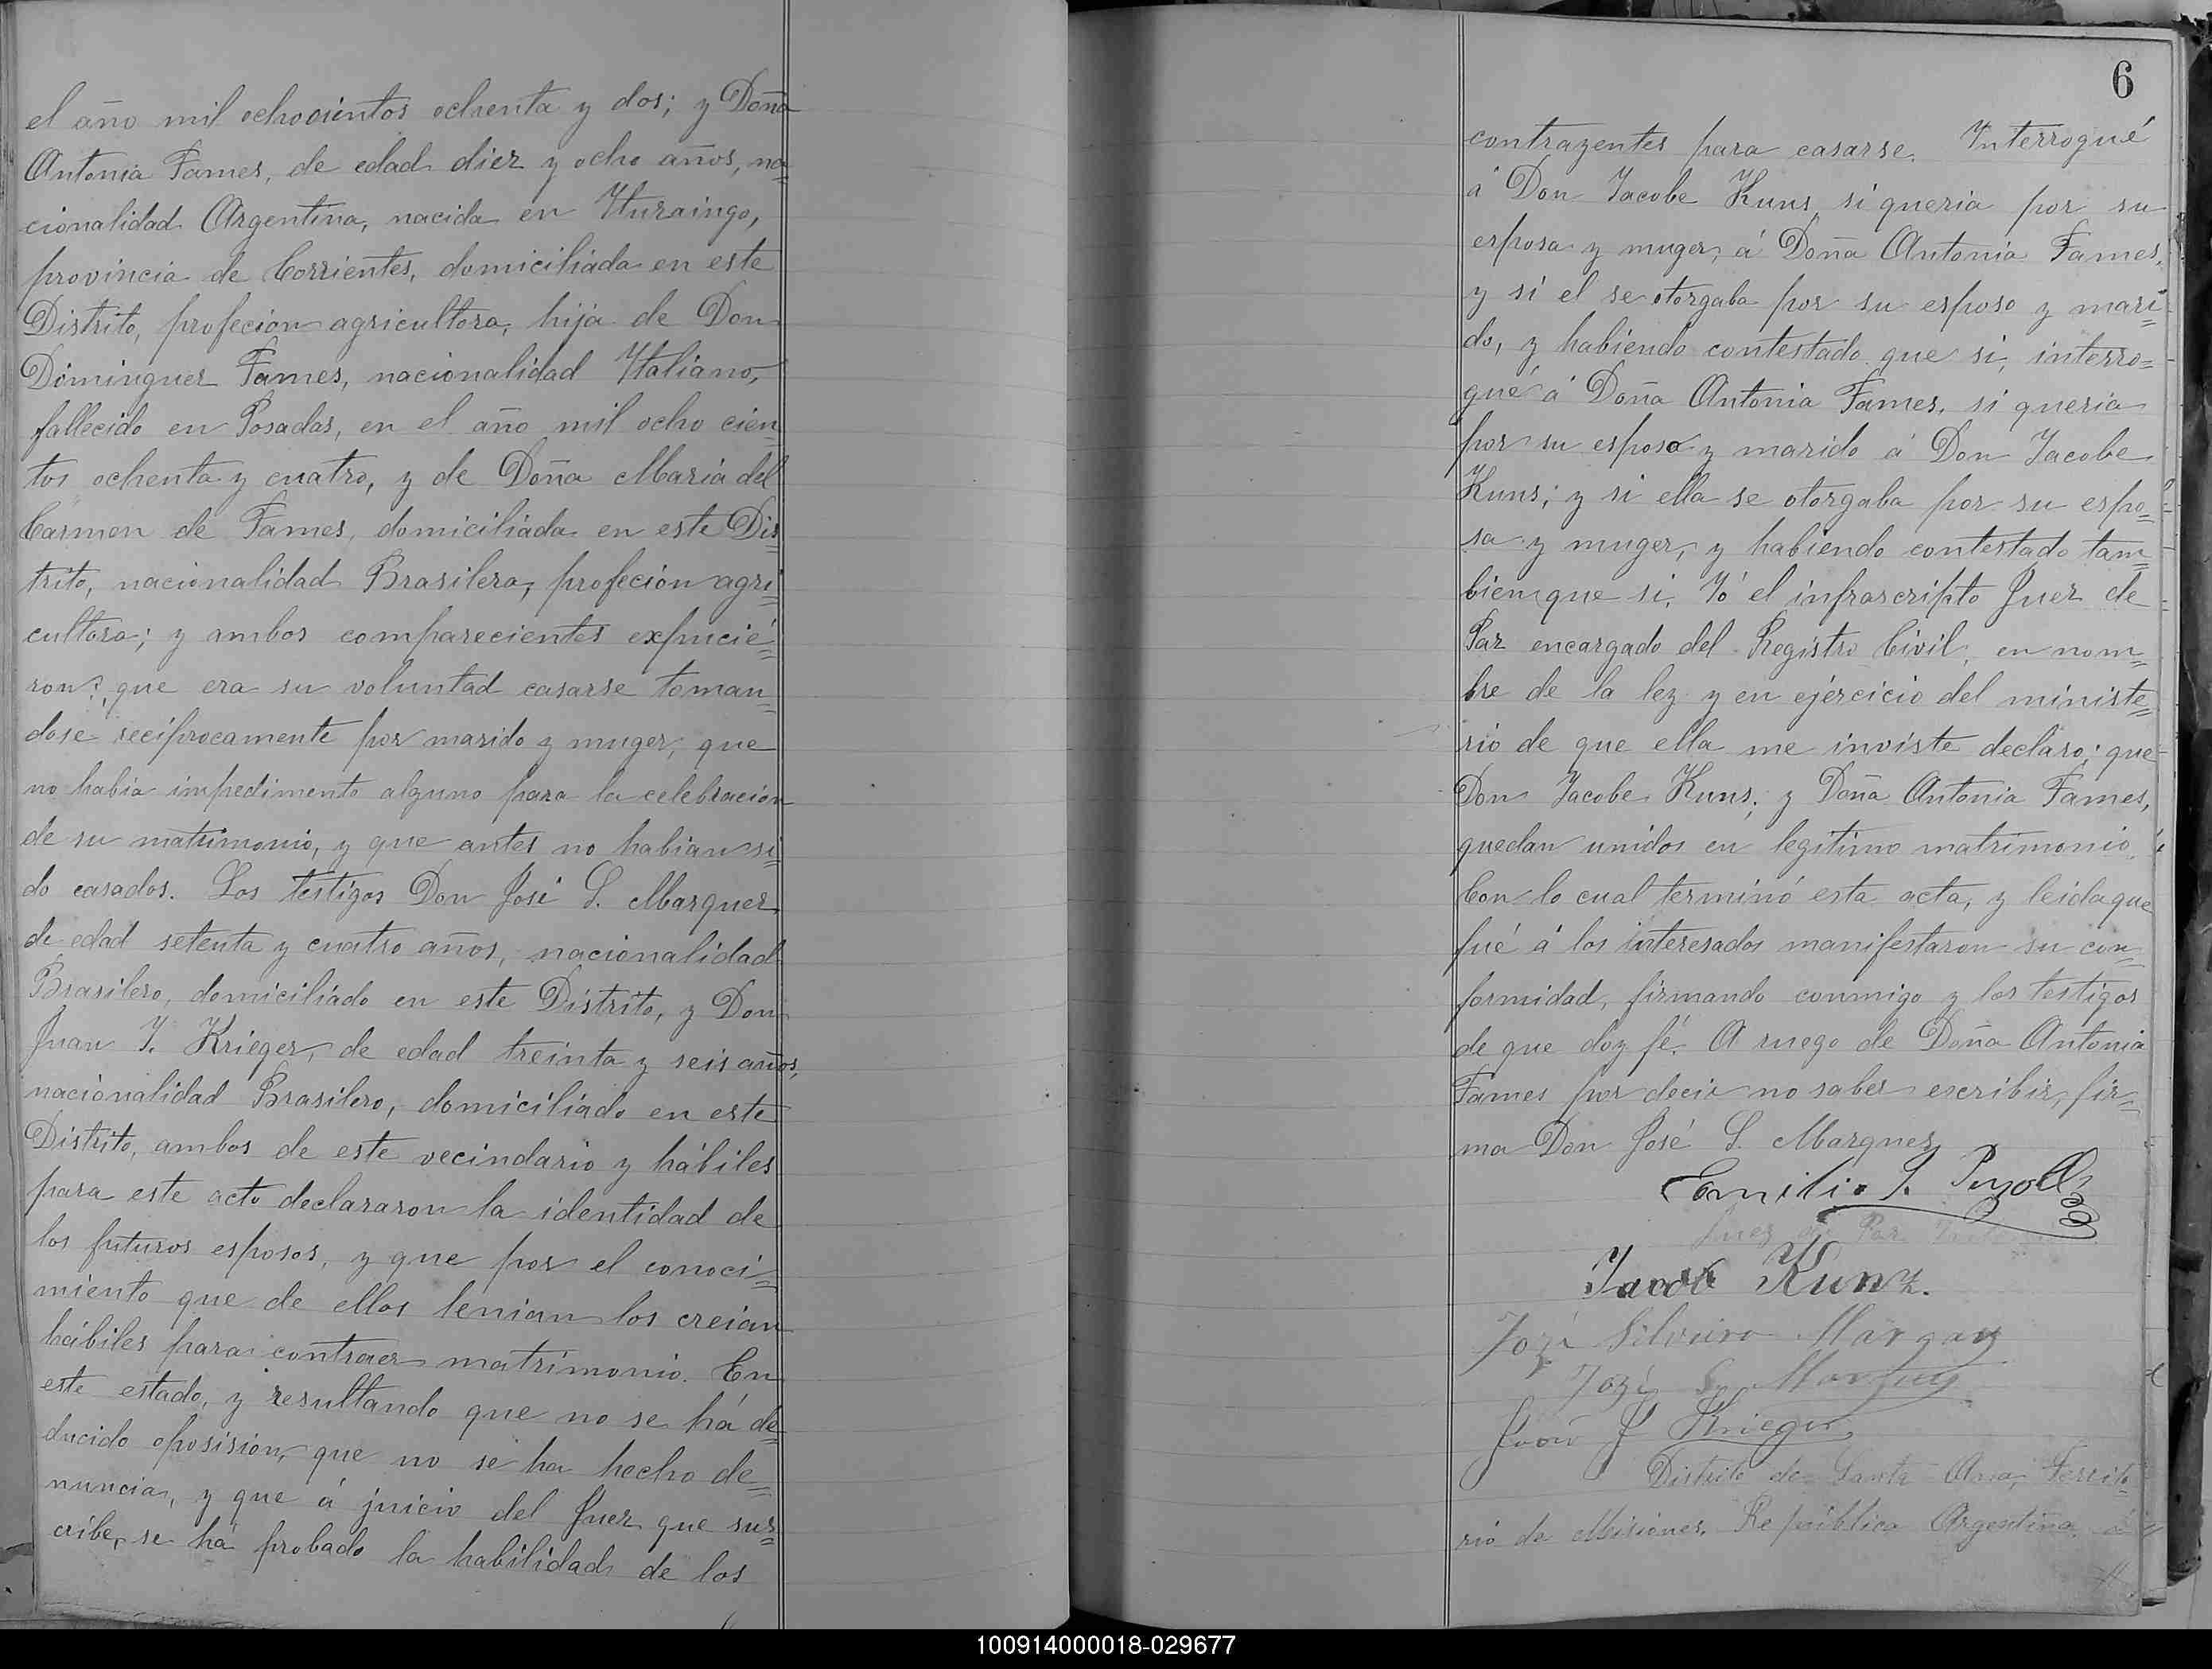 el año mil ochocientos ochenta y dos; y Doña
Antonia Fames, de edad diez y ocho años, na=
cionalidad Argentina, nacida en Yturaingo,
provincia de Corrientes, domiciliada en este
Distrito, profecion agricultora, hija de Don
Dominguez Fames, nacionalidad Ytaliano,
fallecido en Posadas, en el año mil ocho cien=
tos ochenta y cuatro, y de Doña Maria del
Carmen de Fames, domiciliada en este Dis=
trito, nacionalidad Brasilera, profecion agri=
cultora; y ambos comparecientes expucié=
ron: que era su voluntad casarse toman=
dose reciprocamente por marido y muger, que
no habia impedimento alguno para la celebracion
de su matrimonio, y que antes no habian si=
do casados. Los testigos Don José S. Marquez
de edad setenta y cuatro años, nacionalidad
Brasilero, domiciliado en este Distrito, y Don
Juan J. Krieger, de edad treinta y seis años,
nacionalidad Brasilero, domiciliado en este
Distrito, ambos de este vecindario y hábiles
para este acto declararon la identidad de
los futuros esposos, y que por el conoci=
miento que de ellos tenian los creian
hábiles para contraer matrimonio. En
este estado, y resultando que no se há de=
ducido oposision, que no se ha hecho de=
nuncia, y que á juicio del Juez que sus=
cribe, se há probado la habilidad de los
6
contrayentes para casarse. Interrogué
á Don Jacobe Kuns, si queria por su
esposa y muger, á Doña Antonia Fames,
y si el se otorgaba por su esposo y mari=
do, y habiendo contestado que si, interro=
gué á Doña Antonia Fames, si queria
por su esposo y marido á Don Jacobe
Kuns; y si ella se otorgaba por su espo=
sa y muger, y habiendo contestado tam=
bien que si, Yó el infrascripto Juez de
Paz encargado del Registro Civil, en nom=
bre de la ley y en ejércicio del ministe=
rio de que ella me inviste declaro; que
Don Jacobe Kuns; y Doña Antonia Fames,
quedan unidos en legitimo matrimonio.
Con lo cual terminó esta acta, y leida que
fué á los interesados manifestaron su con=
formidad, firmando conmigo y los testigos
de que doy fé. A ruego de Doña Antonia
Fames por decir no saber escribir, fir=
ma Don José S. Marquez
Emilio J. Puyoll
Juez de Paz
Jacob Kunz.
Jozé Silveira
Jozé S
J Krieger
Distrito de Santa Ana, Territo=
rio de Misiones, República Argentina, á
100914000018-029677